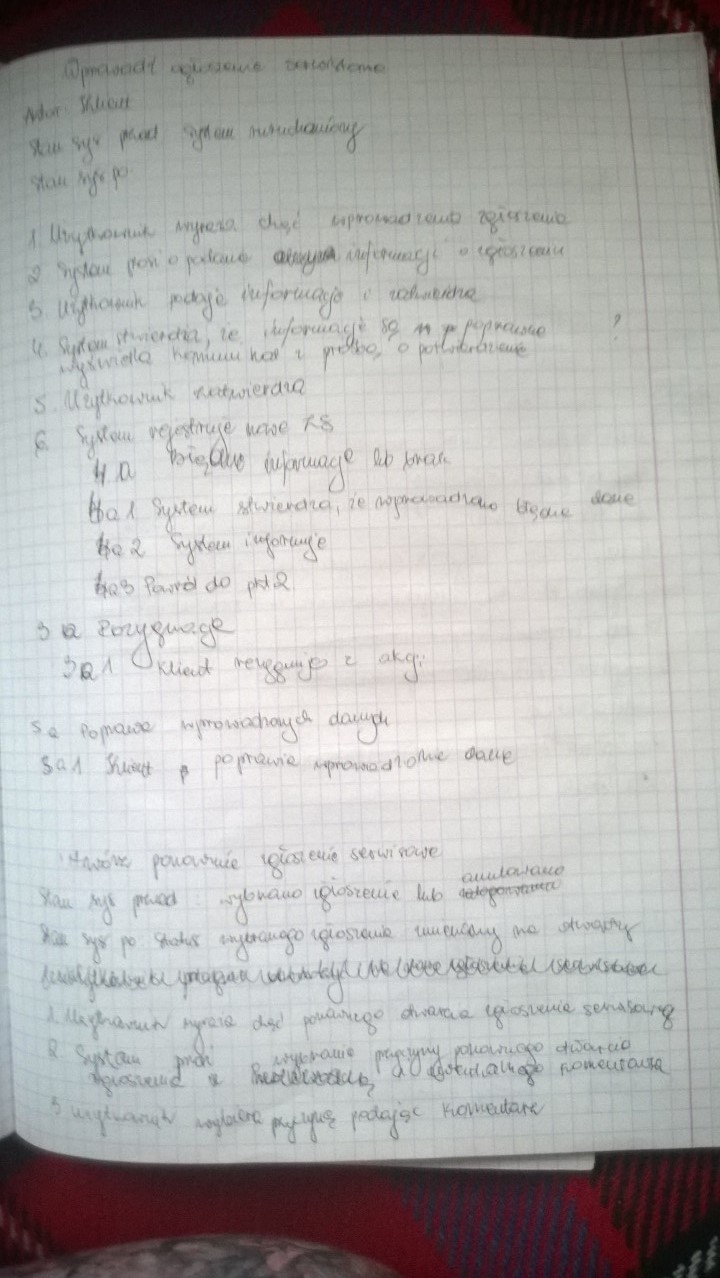 Wprowadź zgłoszenie serwisowe
Aktor: Klient
Stan sys przed system uruchomiony
Stan sys po
1. Użytkownik wyraża chęć wprowadzenia zgłoszenia
2 System prosi o podanie informacji o zgłoszeniu
3. Użytkownik podaje informacje i zatwierdza
4. System stwierdza, że informacje są poprawne ?
wyświetla komunikat z prośbą o potwierdzenie
5. Użytkownik zatwierdza
6 System rejestruje nowe ZS
4.a Błędne informacje lub brak
4a1 System stwierdza, że wprowadzono błędne dane
4a2 System informuje
4a3 Powrót do pkt 2
3a Rezygnacja
3a1 Klient rezygnuje z akcji
5a Poprawa wprowadzonych danych
5a1 Klient poprawia wprowadzone dane
Otwórz ponownie zgłoszenie serwisowe
Stan sys przed: wybrano zgłoszenie lub anulowano
Stan sys po Status wybranego zgłoszenia zmieniony na otwarty
1. Użytkownik wyraża chęć ponownego otwarcia zgłoszenia serwisowego
2. System prosi wybranie przyczyny ponownego otwarcia
zgłoszenia komentarza
3 użytkownik wybiera przyczynę podając komentarz